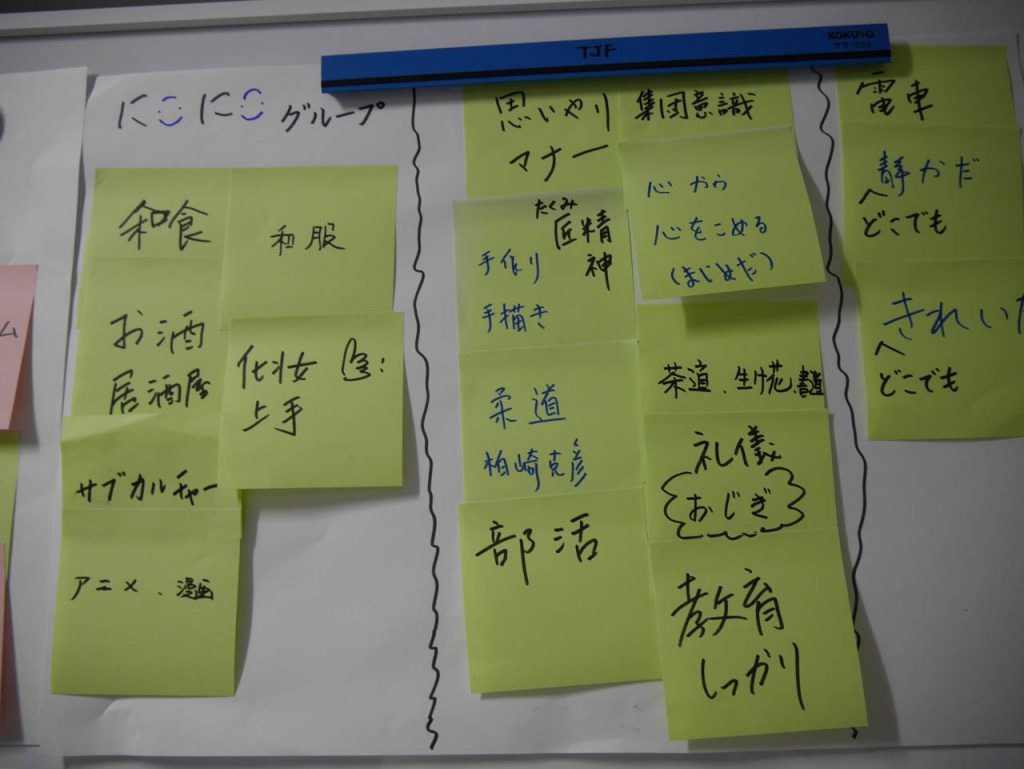 TJF
KOKUYO
マク-301
にこにこ グループ
和食
和服
お酒
居酒屋
化妆
上手
サブカルチャー
アニメ、漫画
思いやり
マナー
集団意識
たくみ
匠精神
手作り
手描き
心から
心をこめる
(まじめだ)
柔道
柏崎克彦
茶道、生け花、書道
部活
礼儀
おじぎ
教育
しっかり
電車
静かだ
へ
どこでも
きれいだ
へ
どこでも
ム